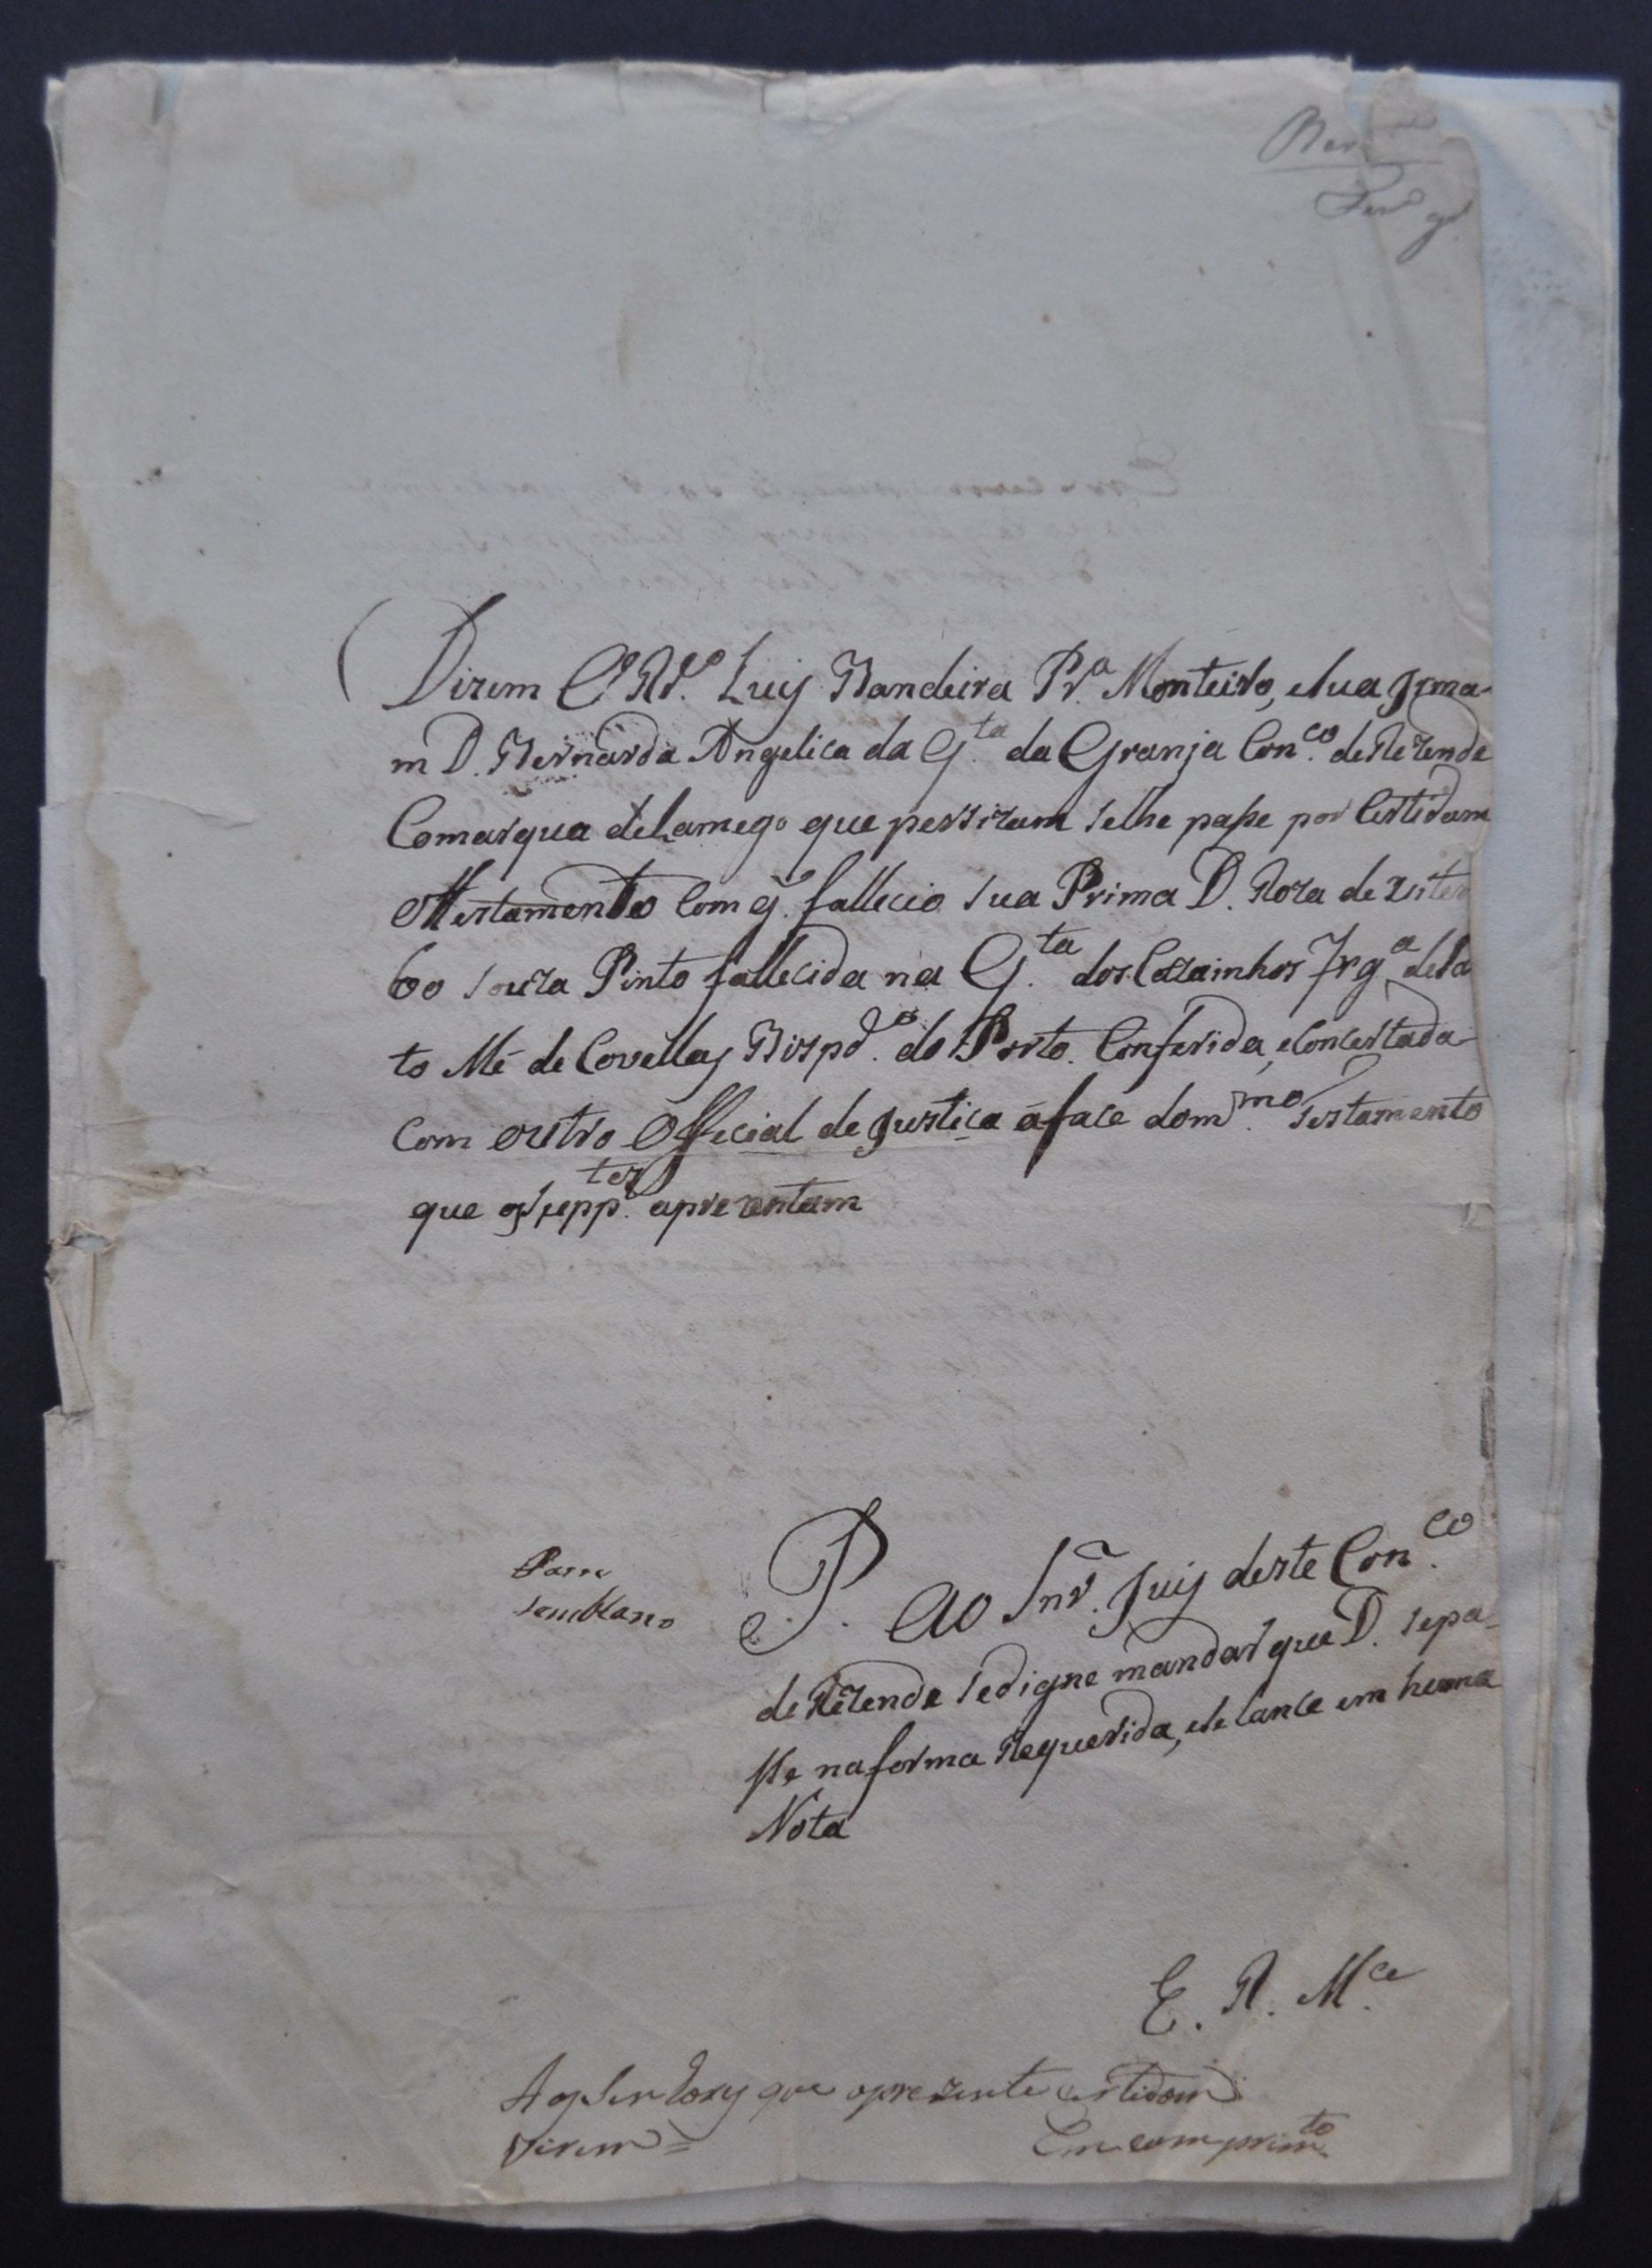 Dizem O Rd.º Luis Bandeira Pr.ª Monteiro, e sua Irma-
m D. Bernarda Angelica da Q.ta da Granja Con.co de Rezende
Comarqua de Lamego que persizam selhe passe por Certidam
o Testamento Com q. fallecio sua Prima D. Roza de
bo souza Pinto fallecida na Q.ta dos Cazainhos Frg.ª de Sa
to Mé de Covellas Bispd.º do Porto. Conferida, e Concertada
Com outro Official de Justiça áface dom.mo Testamento
que os supp.tes aprezentam
Pace
P. Ao Snr. Juis deste Con.co
de Rezende sedigne mandar que D. sepa-
sse naforma Requerida, ele lance em huma
Nota
E. R. M.ce
que aprezente Certidam
Em comprim.to